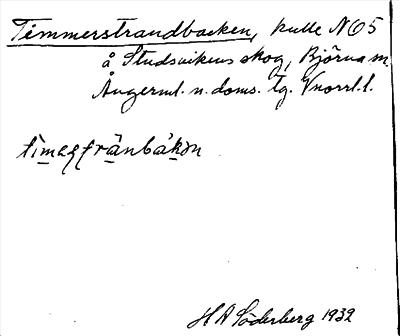 Timmerstrandbacken, kulle NO5
å Studsvikens skog, Björna sn.
Ångerml. n. doms. tg. Vnorrl. l.
H A Söderberg 1932